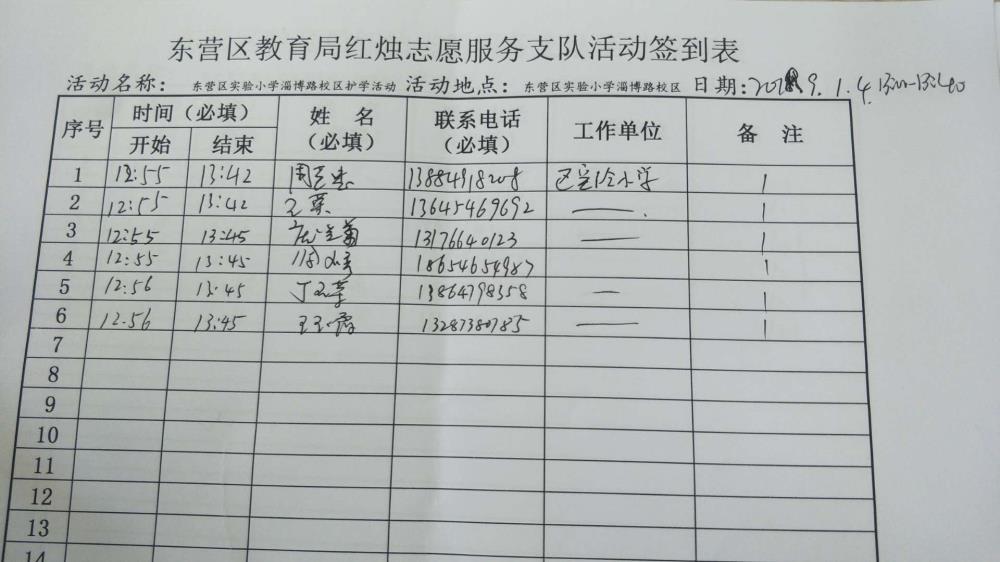 东营区教育局红烛志愿服务支队活动签到表
活动名称：东营区实验小学淄博路校区护学活动 活动地点：东营区实验小学淄博路校区 日期：2019.1.4. 13:00-13:40
序号 时间（必填） 姓 名（必填） 联系电话（必填） 工作单位 备 注
开始 结束
1 12:55 13:42 13884918208 区实验小学
2 12:55 13:42 13645469692
3 12:55 13:45 13176640123
4 12:55 13:45 18654654987
5 12:56 13:45 13864798358
6 12:56 13:45 13287380785
7
8
9
10
11
12
13
14